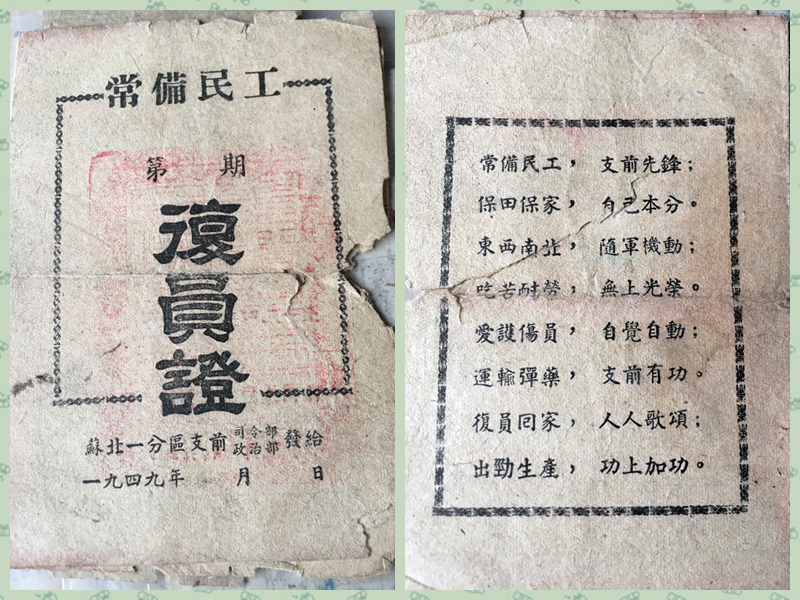 常備民工
第 期
復員證
蘇北一分區支前司令部政治部發給
一九四九年 月 日
常備民工，支前先鋒；
保田保家，自己本分。
東西南北，隨軍機動；
吃苦耐勞，無上光榮。
愛護傷員，自覺自動；
運輸彈藥，支前有功。
復員回家，人人歌頌；
出勁生產，功上加功。